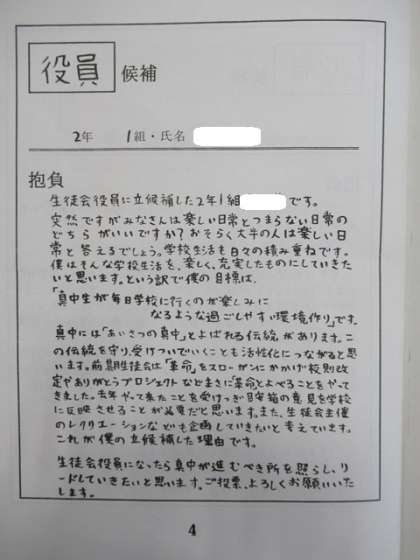 役員 候補
2年 1組・氏名
抱負
生徒会役員に立候補した2年1組 です。
突然ですがみなさんは楽しい日常とつまらない日常の
どちらがいいですか?おそらく大半の人は楽しい日
常と答えるでしょう。学校生活も日々の積み重ねです。
僕はそんな学校生活を、楽しく、充実したものにしていきた
いと思います。という訳で僕の目標は、
「真中生が毎日学校に行くのが楽しみに
なるような過ごしやすい環境作り」です。
真中には「あいさつの真中」とよばれる伝統があります。こ
の伝統を守り、受けついでいくことも活性化につながると思
います。前期生徒会は「革命」をスローガンにかかげ校則改
定やありがとうプロジェクトなどまさに「革命」とよべることをやって
きました。去年やって来たことを受けつぎ目安箱の意見を学校
に反映させることが必要だと思います。また、生徒会主催
のレクリエーションなども企画していきたいと考えています。
これが僕の立候補した理由です。
生徒会役員になったら真中が進むべき所を照らし、リ
ードしていきたいと思います。ご投票、よろしくお願いいた
します。
4